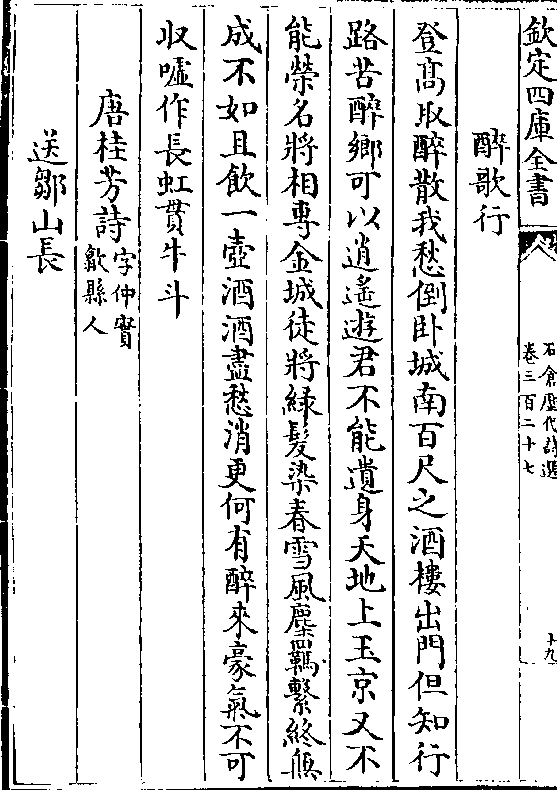 欽定四庫全書
石倉歷代詩選
卷三百二十七
十九
醉歌行
登髙取醉散我愁倒卧城南百尺之酒樓出門但知行
路苦醉鄉可以逍遙遊君不能遺身天地上玉京又不
能榮名將相專金城徒將緑髮染春雪風塵羈繫終無
成不如且飲一壺酒酒盡愁消更何有醉來豪氣不可
收嘘作長虹貫牛斗
唐桂芳詩
字仲實
歙縣人
送鄒山長